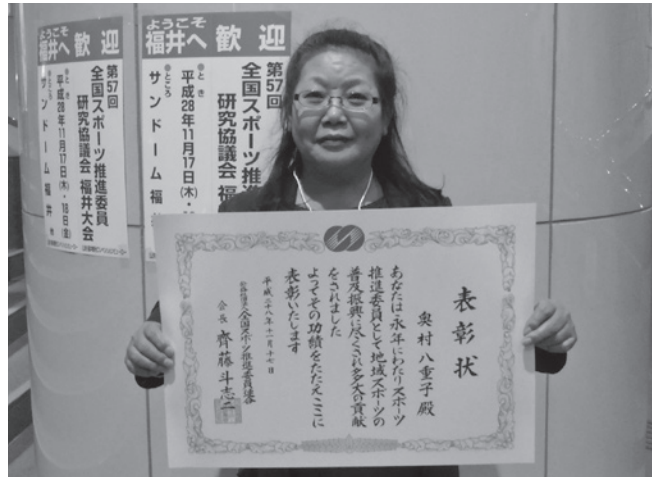 ようこそ
福井へ 歓迎
第57回
全国スポーツ推進委員
研究協議会 福井大会
●とき
平成28年11月17日(木)・18日(金)
●ところ
サンドーム福井 他
ようこそ
福井へ 歓迎
第57回
全国スポーツ推進
研究協議会 福
●とき
平成28年11月17日(木)・
●ところ
サンドーム福
表彰状
奥村八重子殿
あなたは永年にわたりスポーツ
推進委員として地域スポーツの
普及振興に尽くされ多大の貢献
をされました
よってその功績をたたえここに
表彰いたします
平成二十八年十一月十七日
公益社団法人全国スポーツ推進委員連合
会長 齊藤斗志二